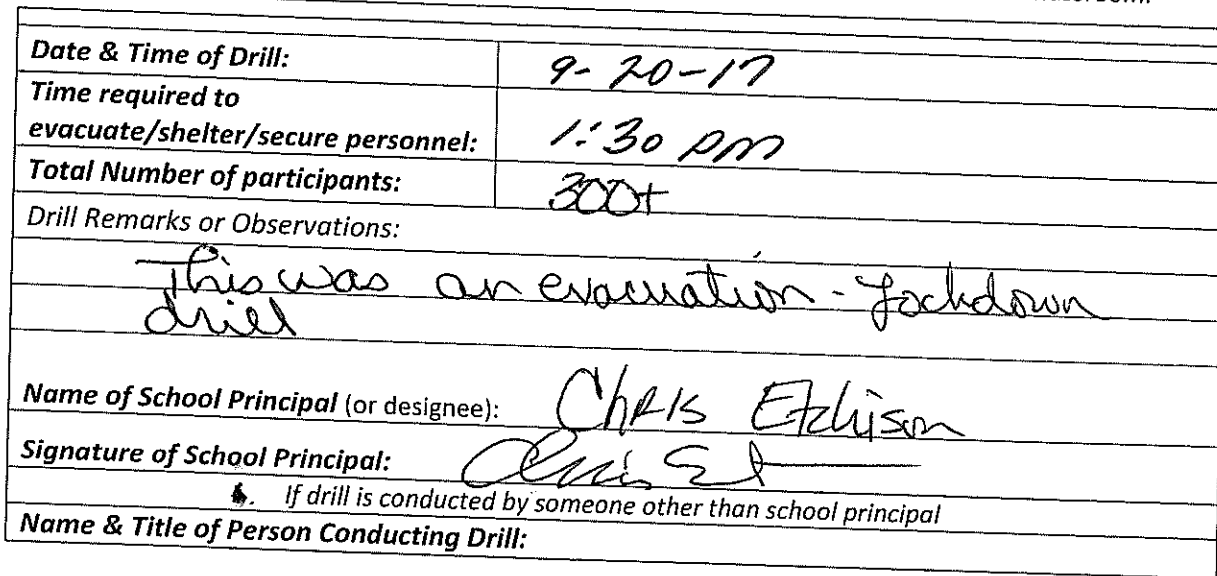 Date & Time of Drill: 9-20-17
Time required to
evacuate/shelter/secure personnel: 1:30 pm
Total Number of participants: 300+
Drill Remarks or Observations:
This was an evacuation - Lockdown
drill
Name of School Principal (or designee): Chris Etchison
Signature of School Principal:
If drill is conducted by someone other than school principal
Name & Title of Person Conducting Drill: